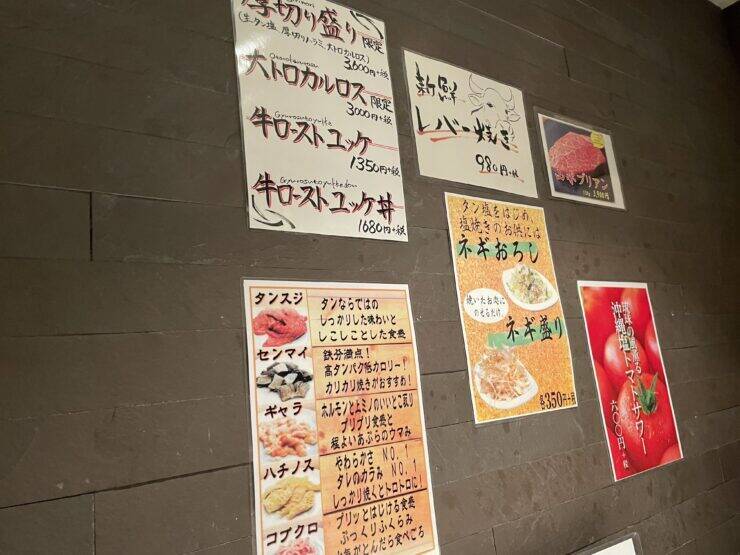 厚切り盛り 限定
(生タン塩、厚切りハラミ、大トロカルロス)
3,600円+税
大トロカルロス 限定
3000円+税
Gyurosutoyukke
牛ローストユッケ
1350円+税
Gyurosutoyukkedon
牛ローストユッケ丼
1680円+税
新鮮
レバー焼き
980円+税
ブリアン
3,900円
タン塩をはじめ、
塩焼きのお供には
ネギおろし
焼いたお肉に
のせるだけ。
ネギ盛り
各350円+税
琉球の風薫る
沖縄塩トマトサワー
六〇〇円+税
タンスジ
タンならではの
しっかりした味わいと
しこしことした食感
センマイ
鉄分満点!
高タンパク低カロリー!
カリカリ焼きがおすすめ!
ギャラ
ホルモンと上ミノのいいとこ取り
プリプリ食感と
程よいあぶらのウマみ
ハチノス
やわらかさ NO.1
タレのカラみ NO.1
しっかり焼くとトロトロに!
コブクロ
プリッとはじける食感
ぷっくりふくらみ
水気がとんだら食べごろ